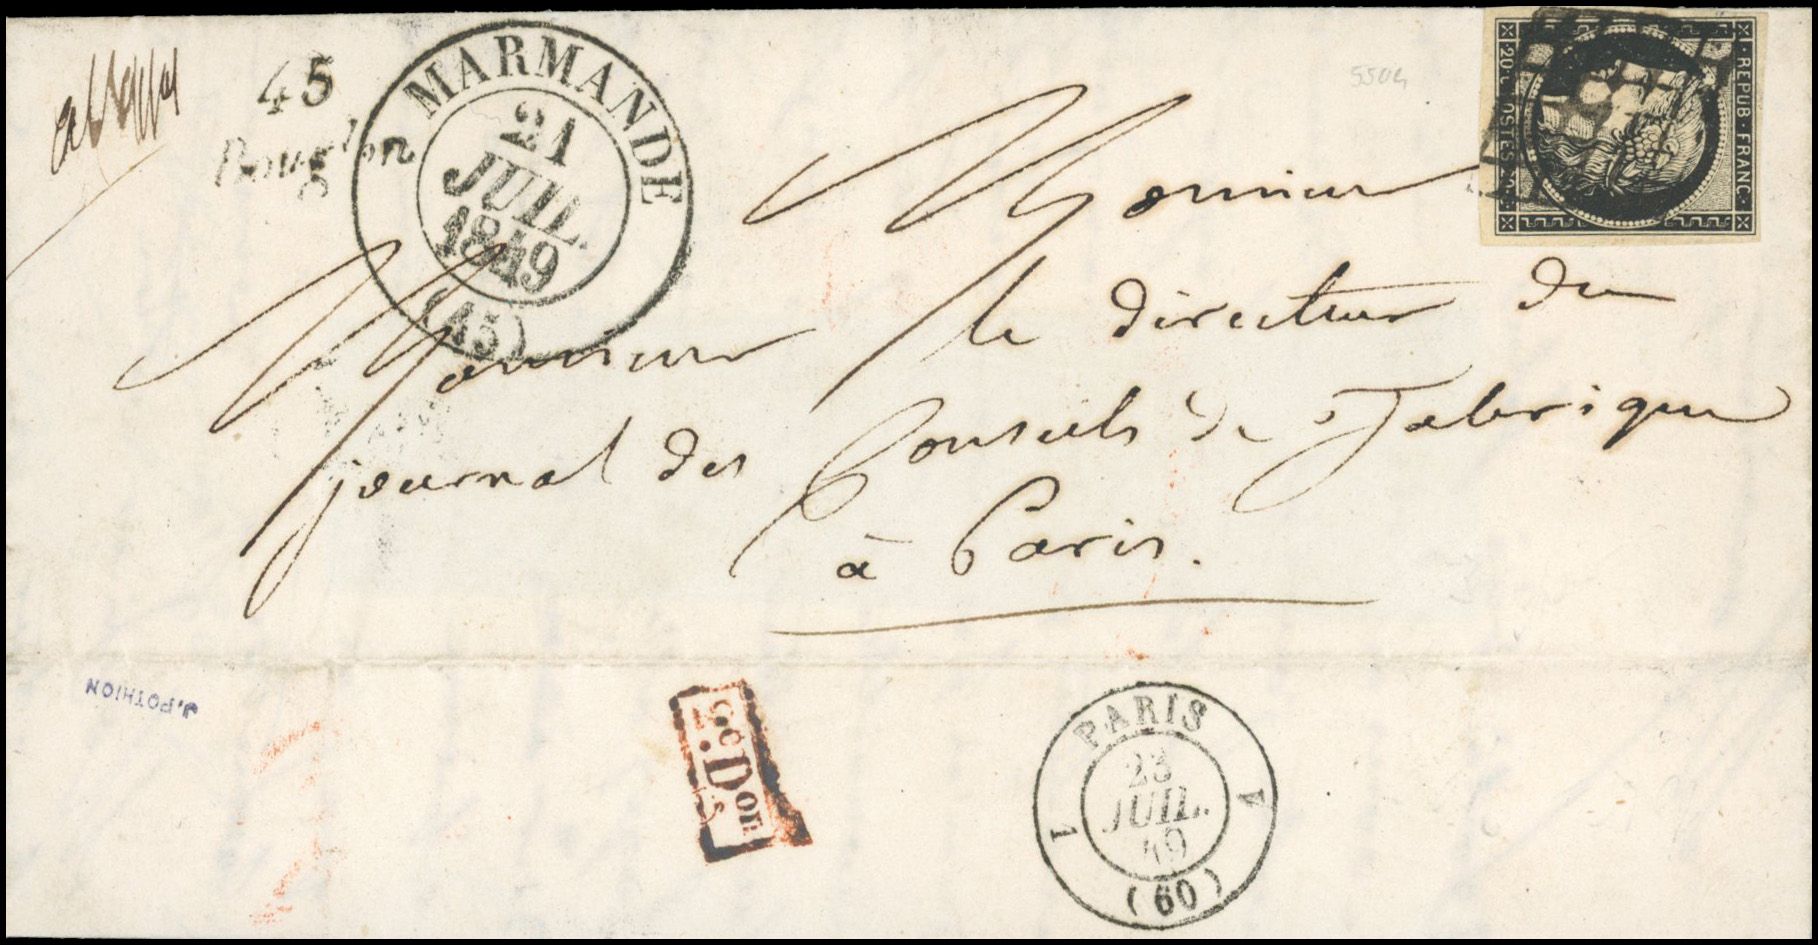 45
Bouglon
MARMANDE
21
JUIL.
1849
(45)
5504
REPUB · FRANC ·
Monsieur
Monsieur le directeur du
journal des Conseils de Fabrique
à Paris.
J. POTHION
PARIS
23
JUIL.
49
(60)